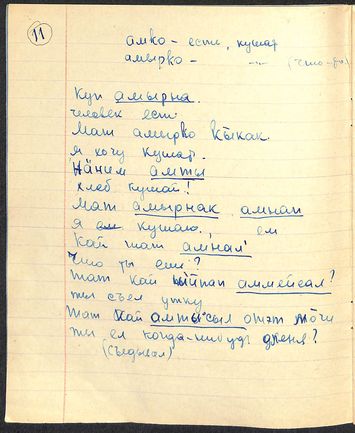 11
амко – есть, кушать
амырко – –"– (что-л.)
Куп амырна.
человек ест
Мат амырко кыкак
я хочу кушать.
Няним амты
хлеб кушай!
Мат амырнак амнап
я кушаю, ем
Кай тат амнал
что ты ешь?
тат кай аммейсал?
ты съел утку
тат кай амтысыл
ты ел когда-нибудь
(съедывал)